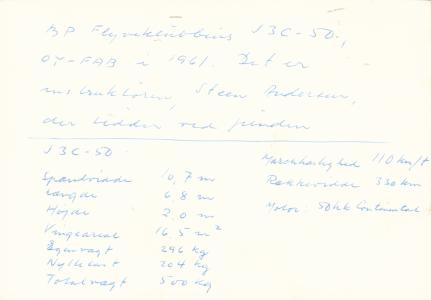 BP Flyveklubbens J3C-50,
OY-FAB i 1961. Det er
instruktøren, Steen Andersen,
der sidder ved pinden
J3C-50
Spændvidde 10,7 m
Længde 6,8 m
Højde 2,0 m
Vingeareal 16,5 m²
Egenvægt 296 kg
Nyttelast 204 kg
Totalvægt 500 kg
Marchhastighed 110 km/t
Rækkevidde 330 km
Motor: 50 hk Continental